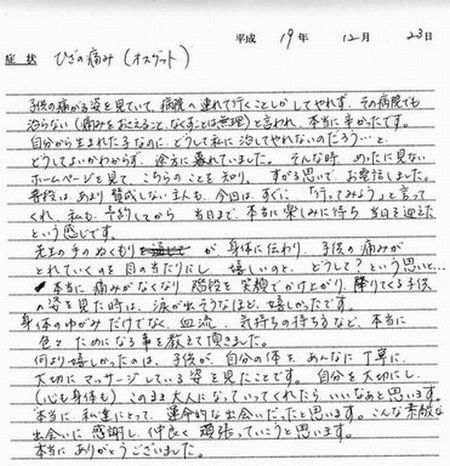 平成 19年 12月 23日
症状 ひざの痛み(オスグット)
子供の痛がる姿を見ていて、病院へ連れて行くことしかしてやれず、その病院でも
治らない(痛みをおさえること、なくすことは無理)と言われ、本当に辛かったです。
自分から生まれた子なのに、どうして私に治してやれないのだろう…と、
どうしてよいかわからず、途方に暮れていました。そんな時、めったに見ない
ホームページを見て、こちらのことを知り、すがる思いで、お電話しました。
普段は、あまり賛成しない主人も、今回は、すぐに「行ってみよう」と言って
くれ、私も、予約してから 当日まで、本当に楽しみに待ち 当日を迎えた
という感じです。
先生の手のぬくもりが 身体に伝わり、子供の痛みが
とれていくのを目の当たりにし 嬉しいのと、どうして?という思いと…
本当に痛みがなくなり 階段を笑顔でかけ上がり、降りてくる子供
の姿を見た時は、涙が出そうなほど、嬉しかったです。
身体のゆがみだけでなく、血流、気持ちの持ち方など、本当に
色々 ためになる事を教えて頂きました。
何より嬉しかったのは、子供が、自分の体を あんなに丁寧に、
大切にマッサージしている姿を見たことです。自分を大切にし、
(心も身体も)このまま大人になっていってくれたら いいなぁと思います。
本当に、私達にとって、運命的な出会いだったと思います。こんな素敵な
出会いに感謝し、仲良く頑張っていこうと思います。
本当にありがとうございました。